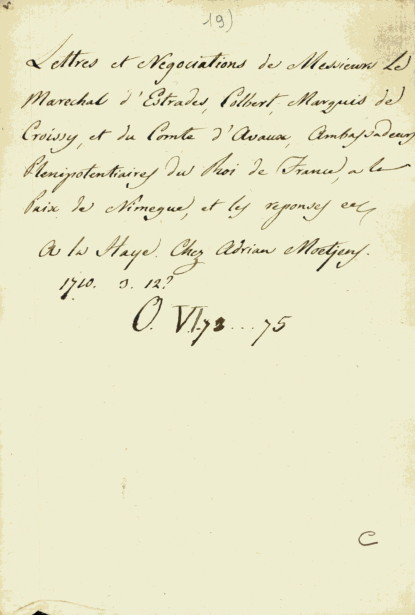 19)
Lettres et Negociations de Messieurs Le
Marechal d'Estrades, Colbert, Marquis de
Croissy, et du Comte d'Avaux, Ambassadeurs
Plenipotentiaires du Roi de France, a la
Paix de Nimegue, et les reponses
A la Haye. Chez Adrian Moetjens.
1710. 3. 12º
O. VI. 73 ... 75
C